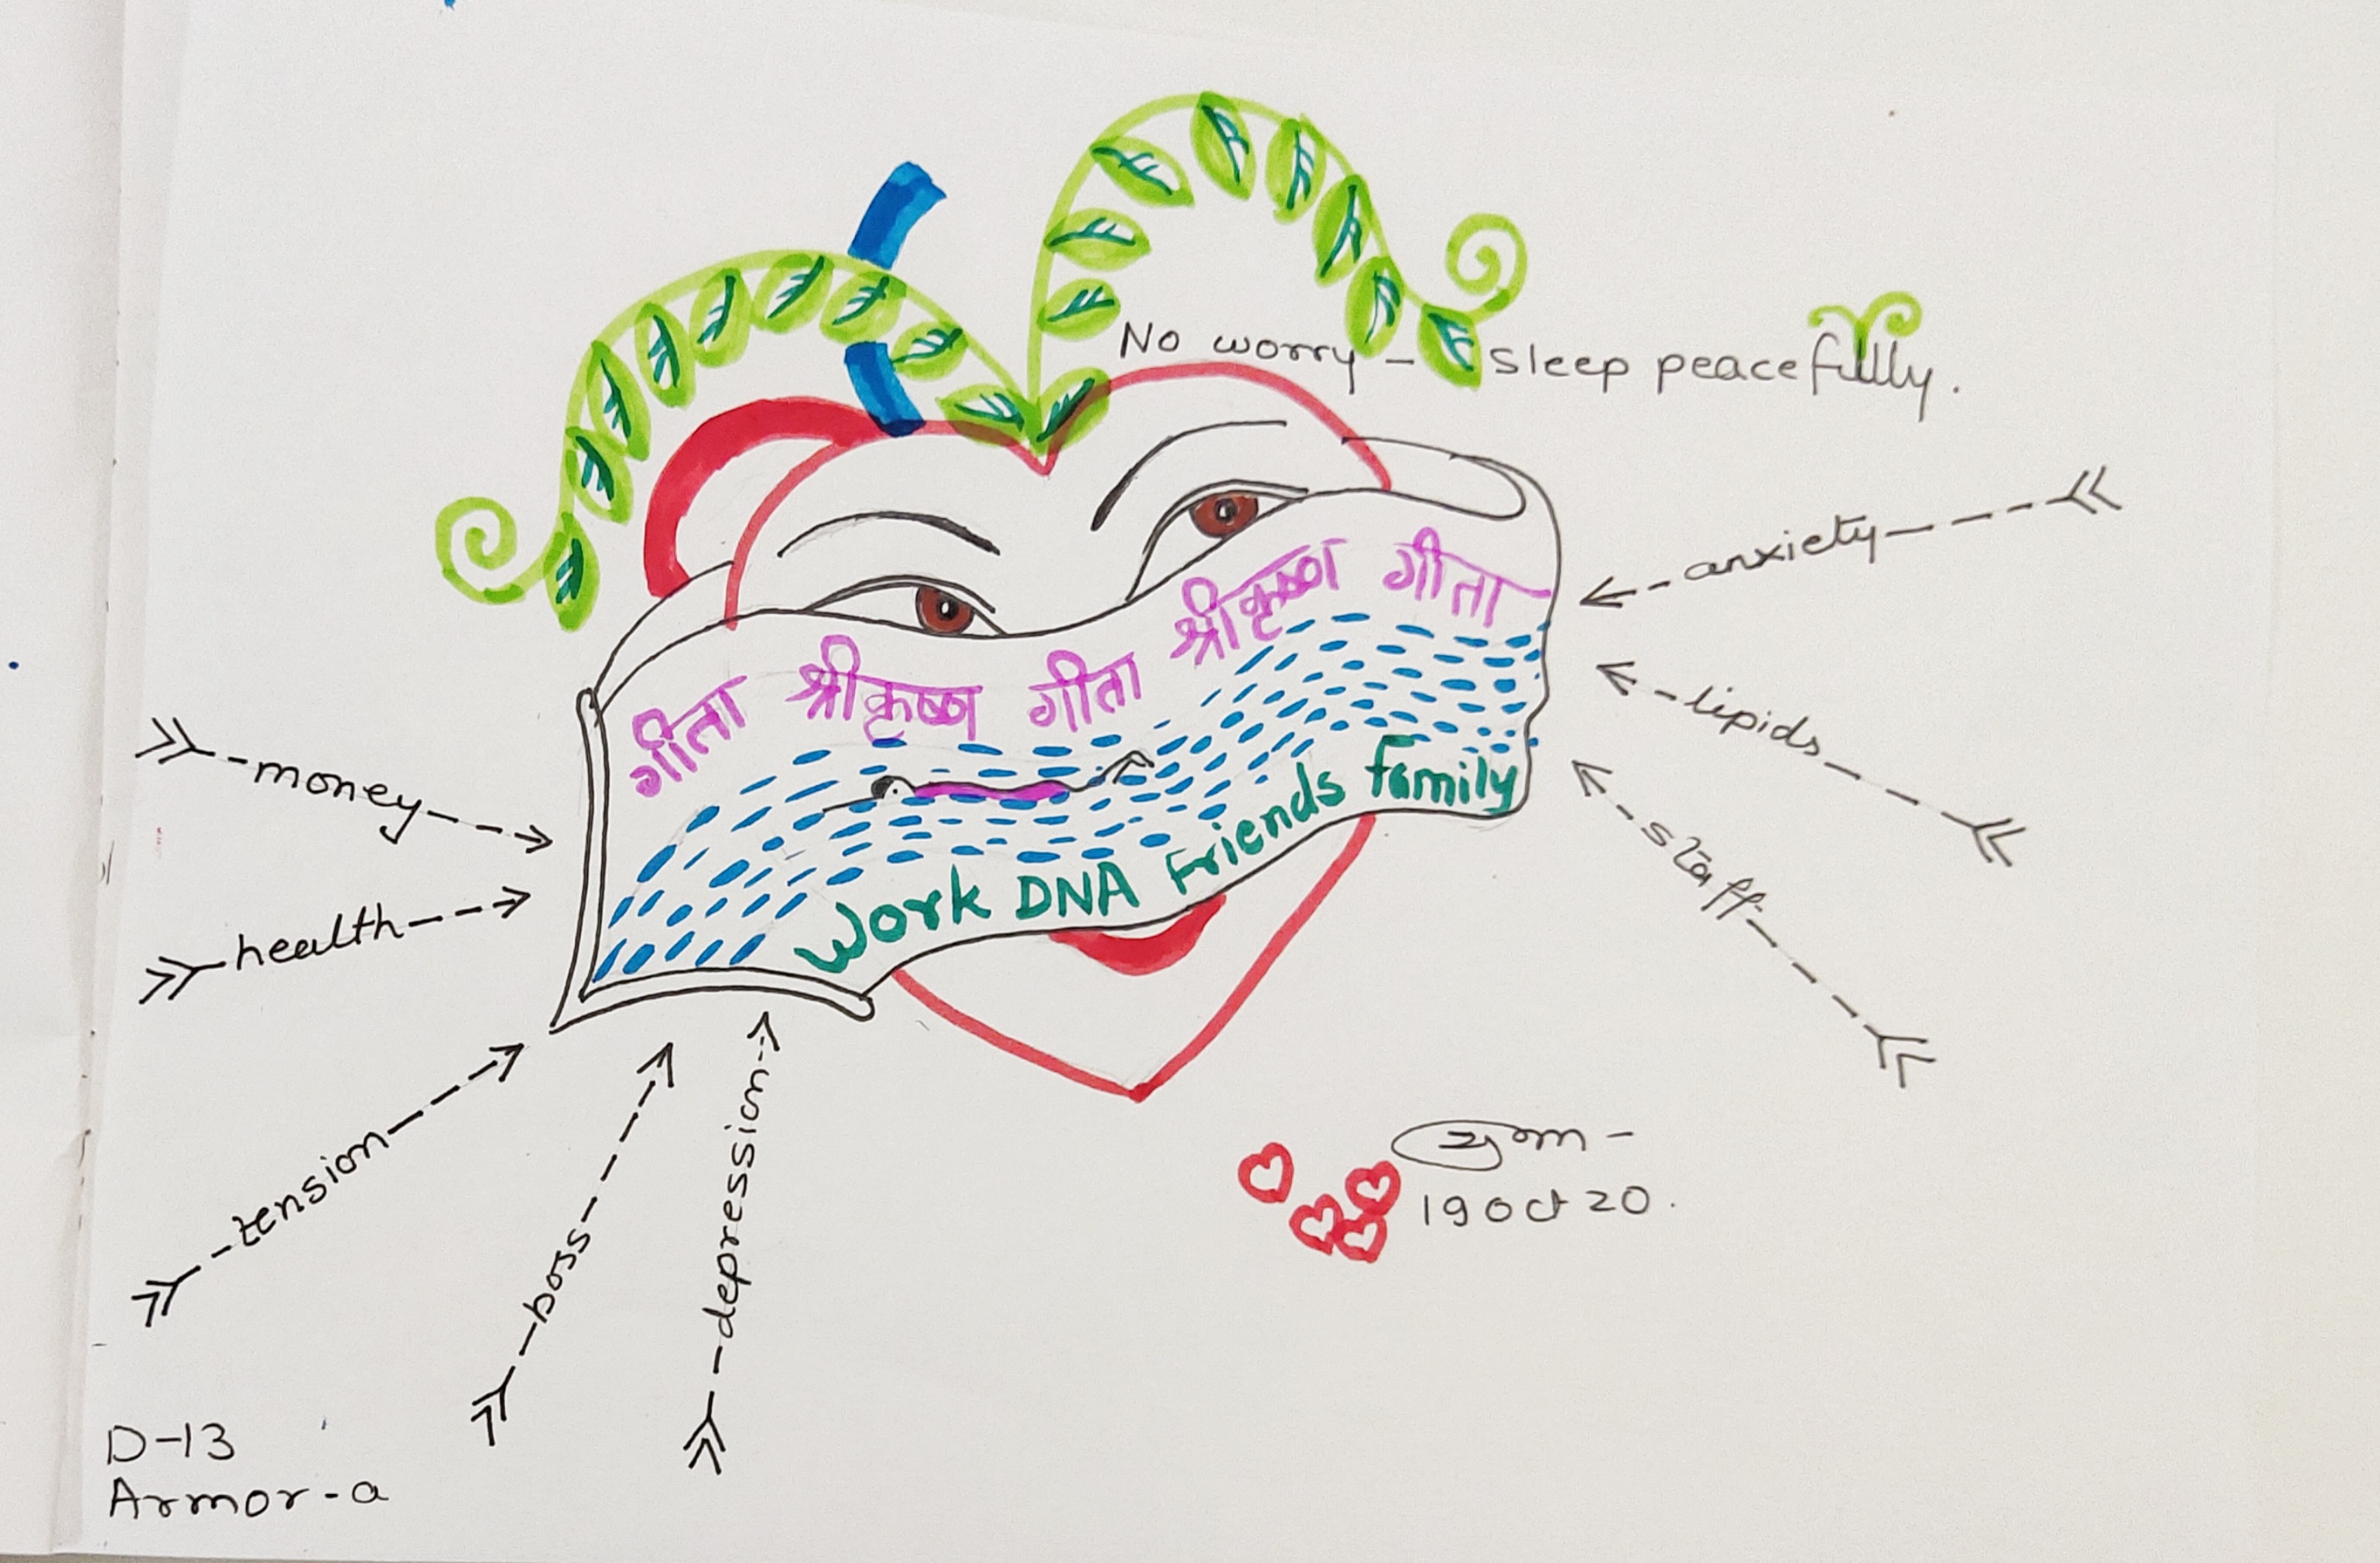 No worry - sleep peacefully.
anxiety
गीता श्रीकृष्ण गीता श्रीकृष्ण गीता
lipids
money
Work DNA Friends family
staff
health
tension
boss
depression
19 Oct 20.
D-13
Armor-a